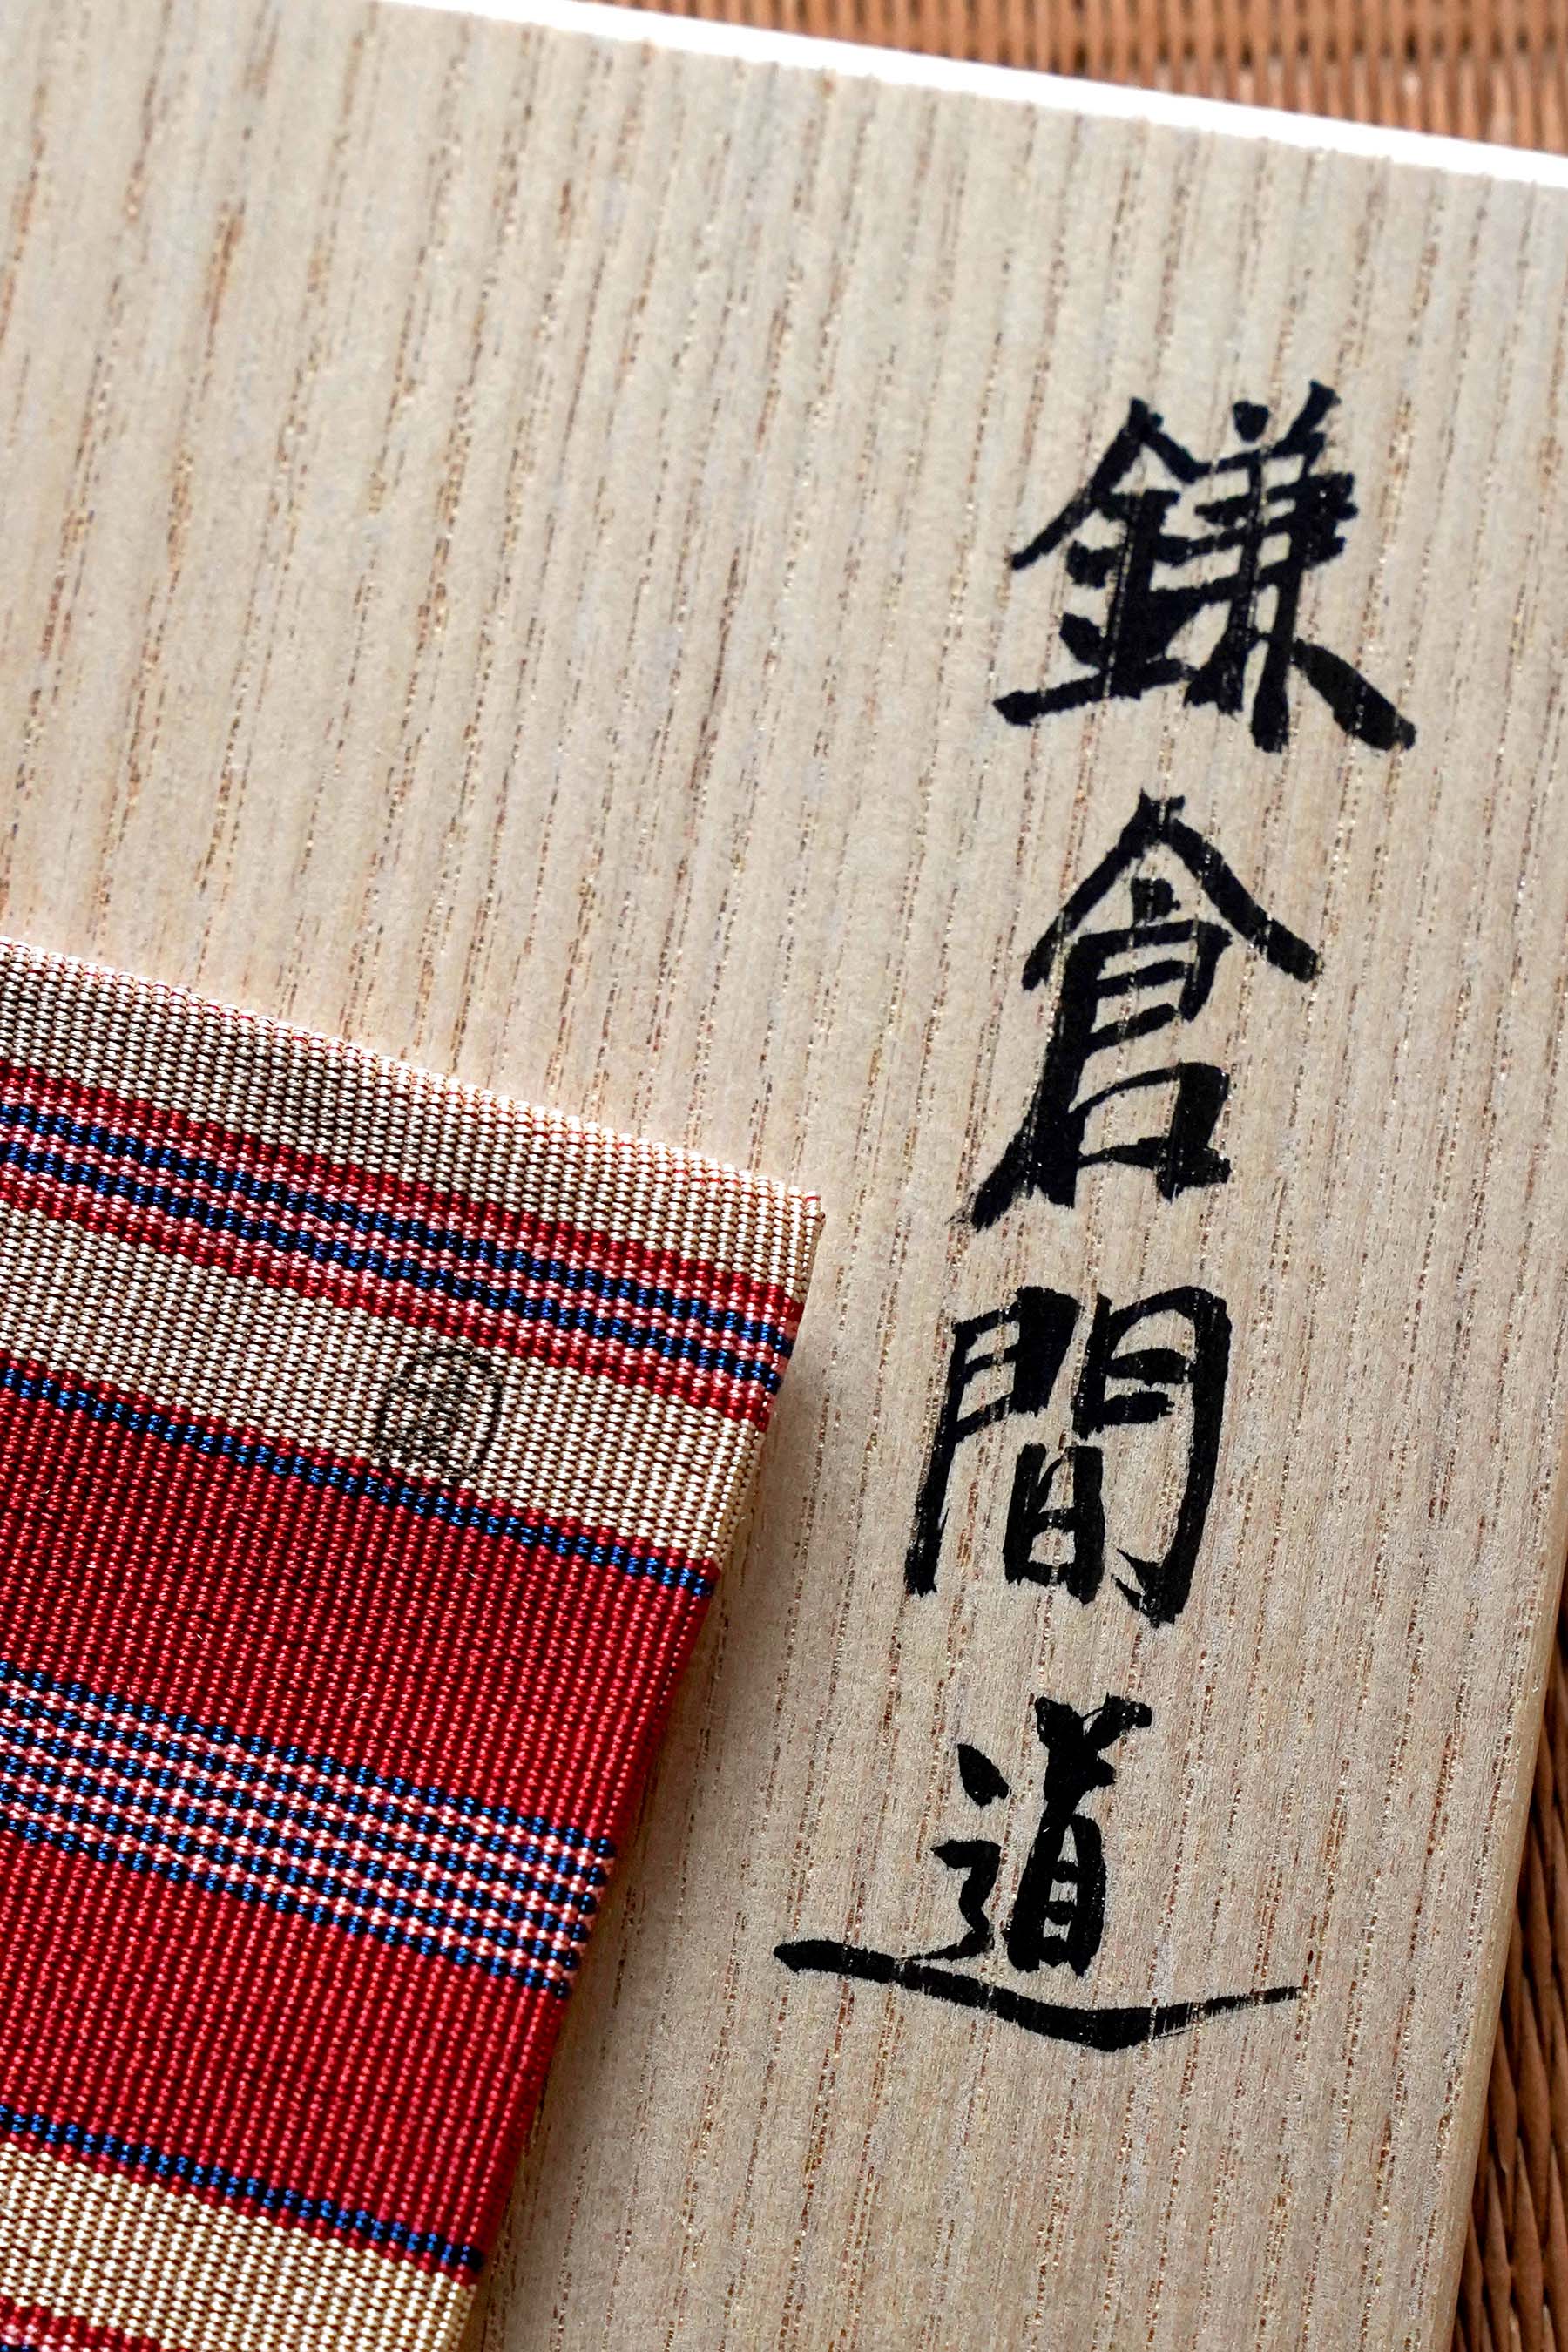 鎌倉間道